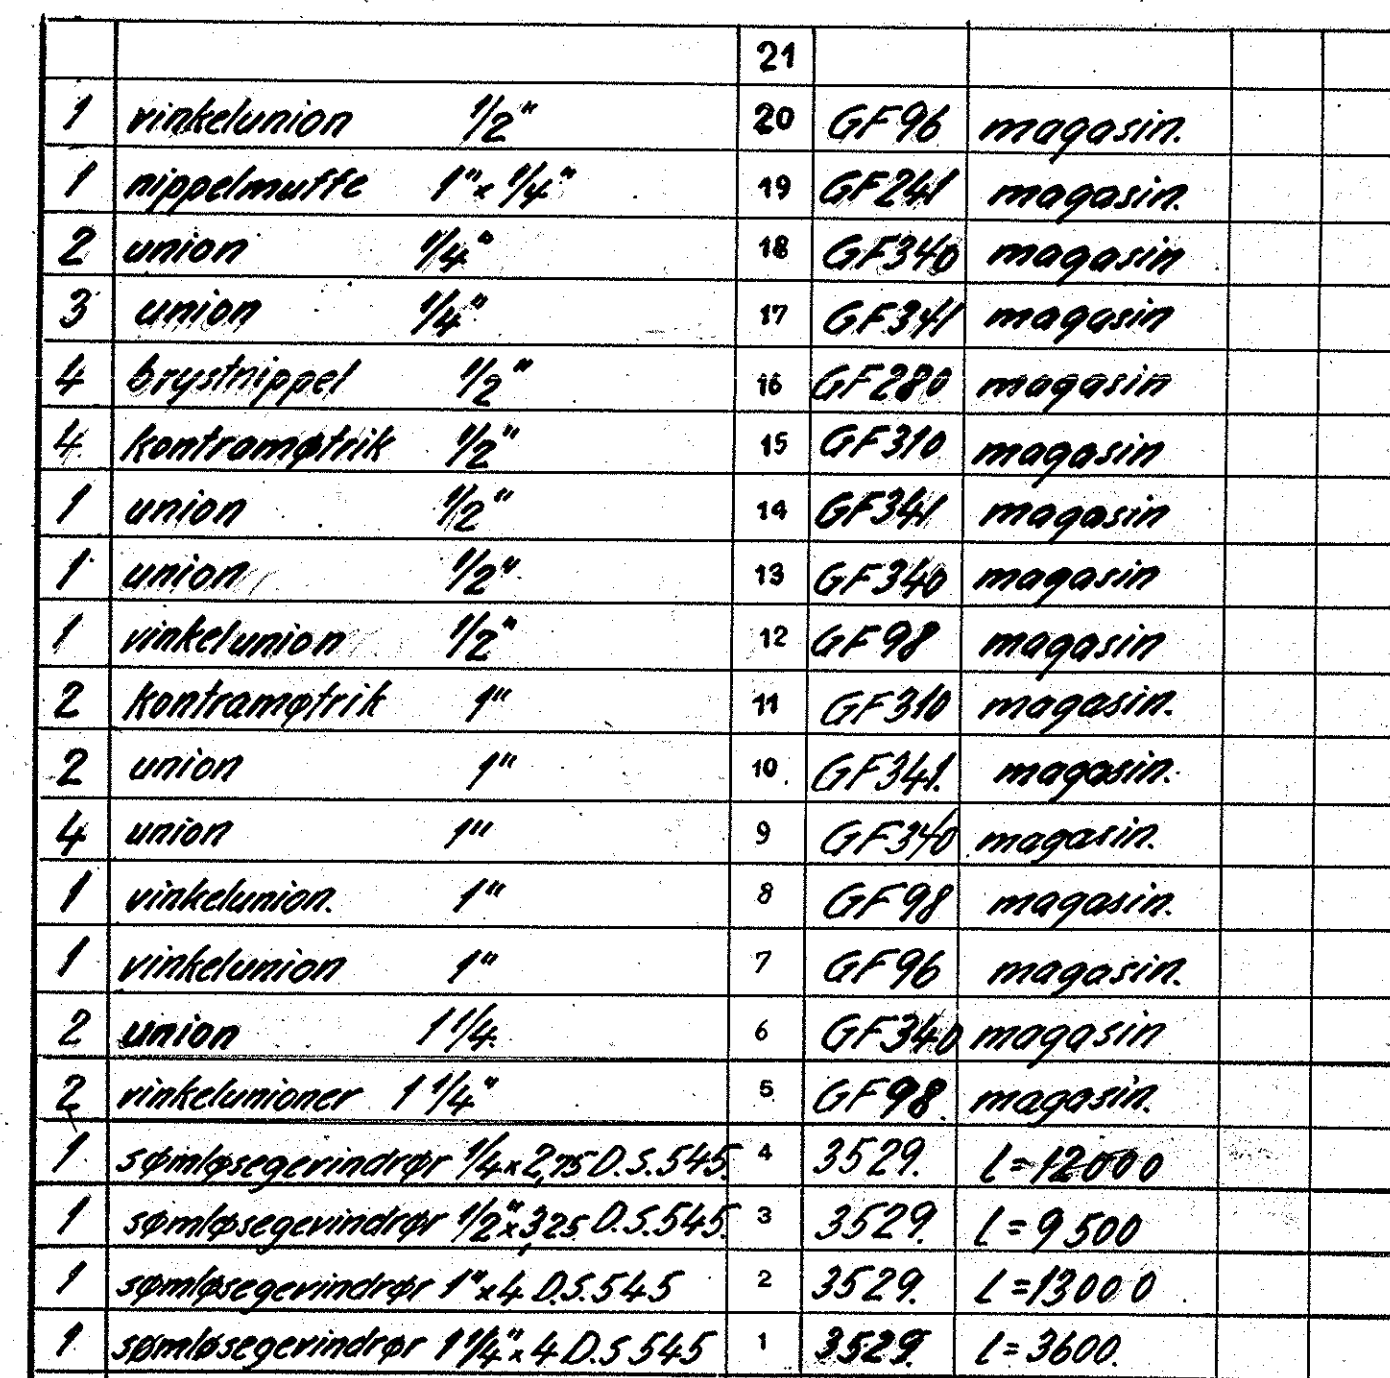 21
1 vinkelunion 1/2" 20 GF96 magasin.
1 nippelmuffe 1"x 1/4" 19 GF241 magasin.
2 union 1/4" 18 GF340 magasin
3 union 1/4" 17 GF341 magasin
4 brystnippel 1/2" 16 GF280 magasin
4 kontramøtrik 1/2" 15 GF310 magasin
1 union 1/2" 14 GF341 magasin
1 union 1/2" 13 GF340 magasin
1 vinkelunion 1/2" 12 GF98 magasin
2 kontramøtrik 1" 11 GF310 magasin.
2 union 1" 10 GF341. magasin.
4 union 1" 9 GF340 magasin.
1 vinkelunion. 1" 8 GF98 magasin.
1 vinkelunion 1" 7 GF96 magasin.
2 union 1 1/4 6 GF340 magasin
2 vinkelunioner 1 1/4" 5 GF98. magasin.
1 sømløsegevindrør 1/4 x 2,75 D.S.545. 4 3529. L=12000
1 sømløsegevindrør 1/2" x 3,25 D.S.545. 3 3529. L=9500
1 sømløsegevindrør 1" x 4 D.S.545 2 3529. L=13000
1 sømløsegevindrør 1 1/4" x 4 D.S 545 1 3529. L=3600.